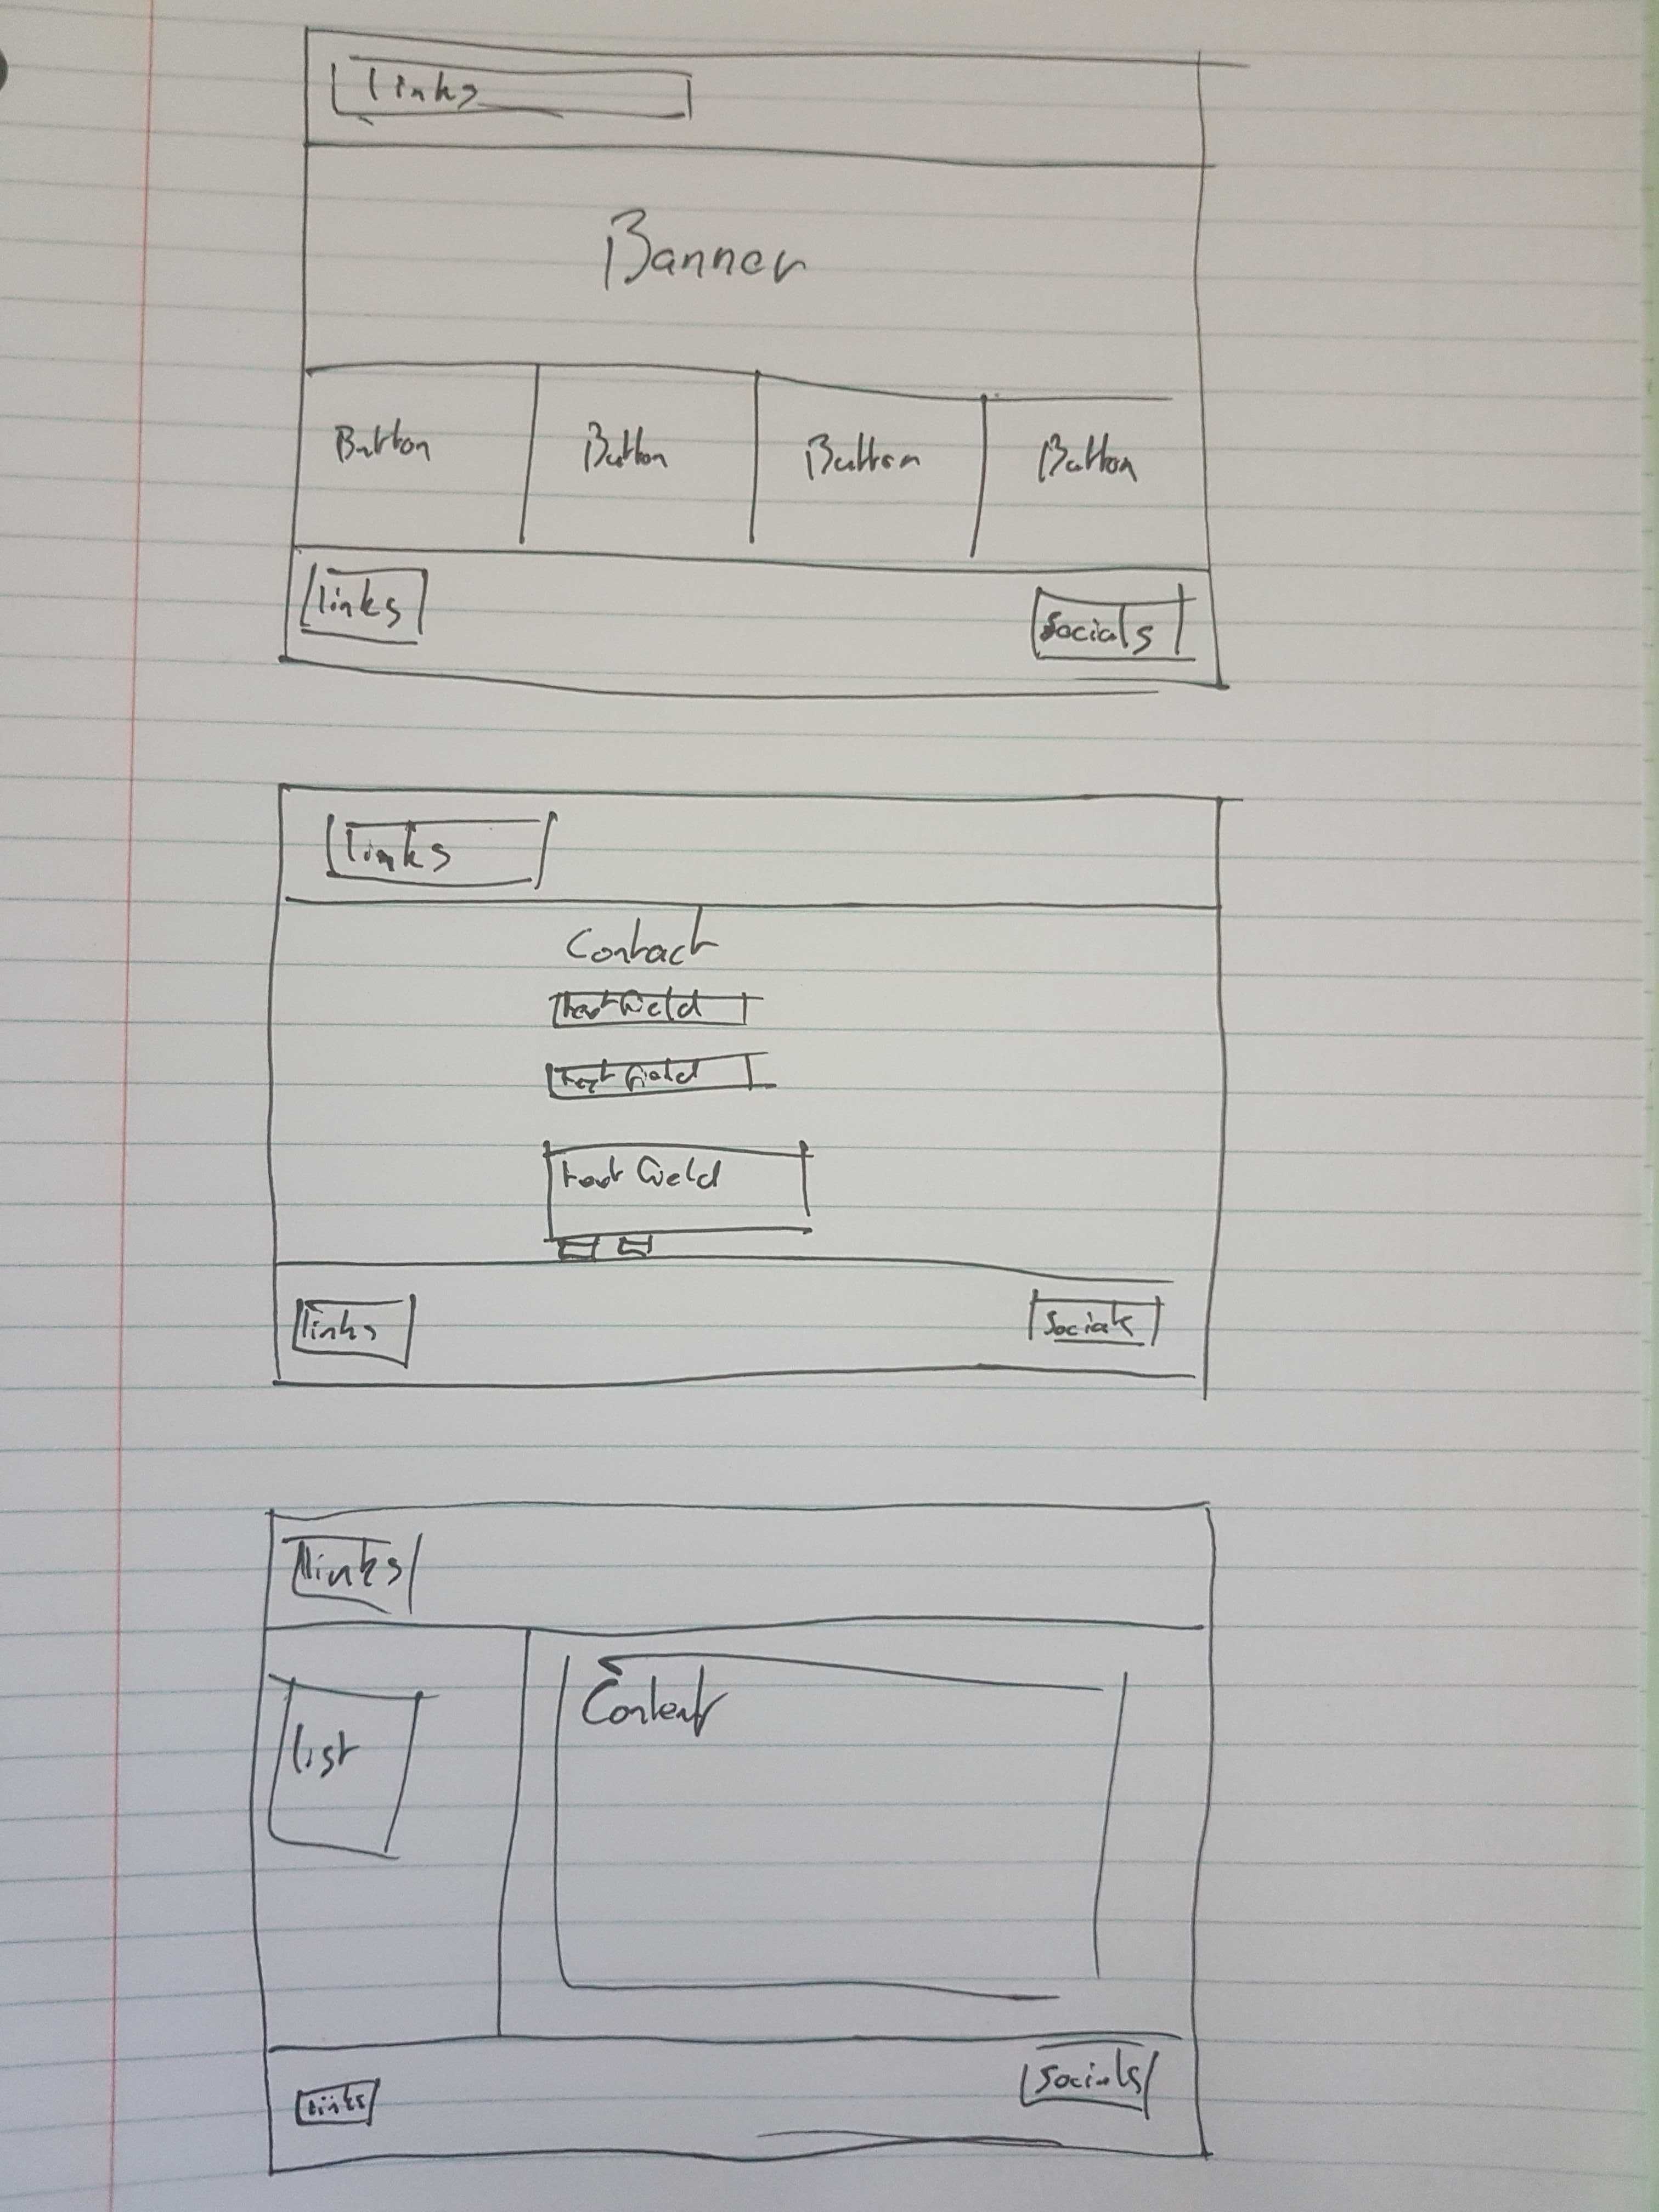 links
Banner
Button Button Button Button
links Socials
links
Contact
text field
text field
text field
links Socials
links
list Content
links Socials